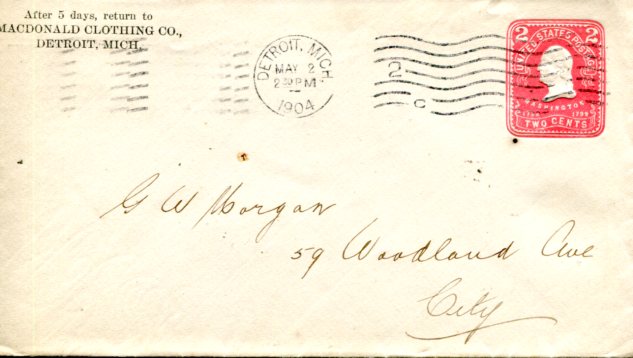 After 5 days, return to
MACDONALD CLOTHING CO.,
DETROIT, MICH.
DETROIT, MICH.
MAY 2
2 30 PM
1904
2
C
2 2
UNITED STATES POSTAGE
WASHINGTON
1799
TWO CENTS
G W Morgan
59 Woodland Ave
City